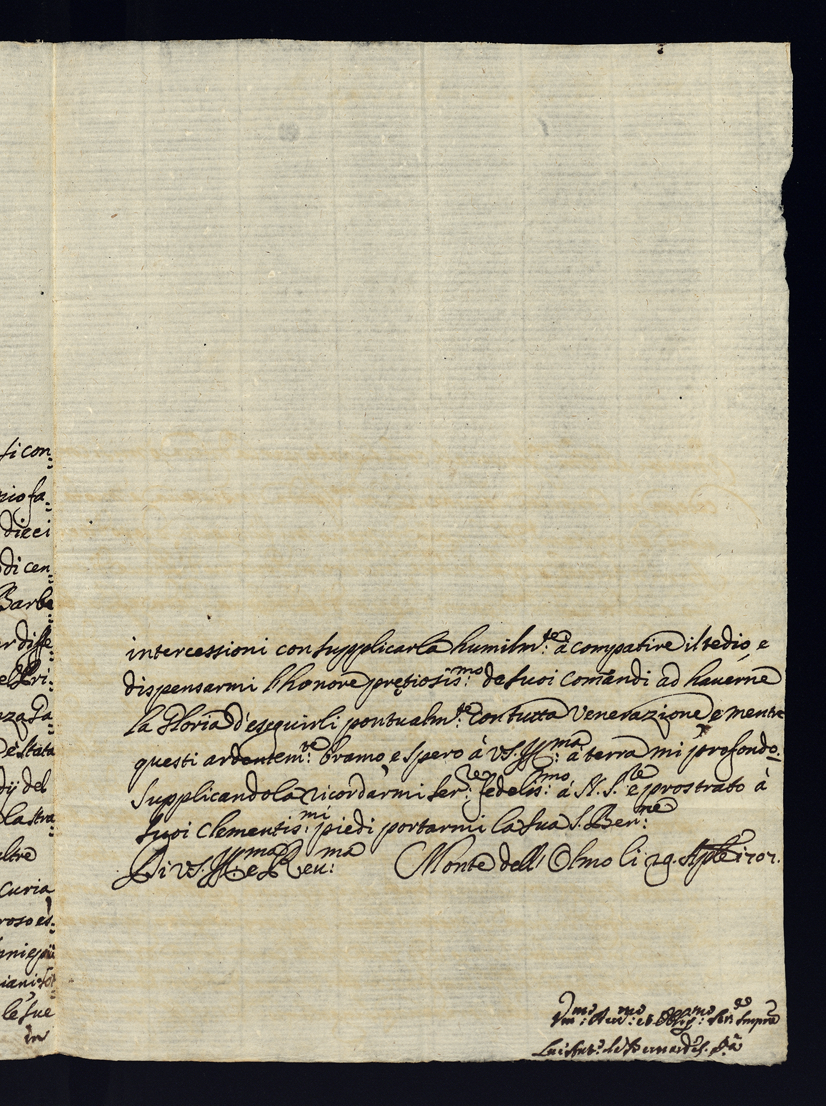 si con=
rio fa=
dieci
di cen=
Barbe
er disse
Pri=
nza Pa
è stata
dij del
la stra=
altre
curia
roso es=
le sue
in
intercessioni con supplicarla humilm:te à compatire il tedio, e
dispensarmi l'honore pretiosis:mo de suoi comandi ad haverne
la gloria d'eseguirli pontualm:te con tutta venerazione e mentre
questi ardentem:te bramo, e spero à VS. Ill:ma à terra mi profondo=
supplicandola ricordarmi ser:re fedelis:mo à N. S.re e prostrato à
suoi clementis:mi piedi portarmi la sua S. Ben:ne
Di VS. Ill:ma e Reu:ma Monte dell' Olmo li 29 Aple 1707.
Vm:mo Deu:mo et Oblig:mo